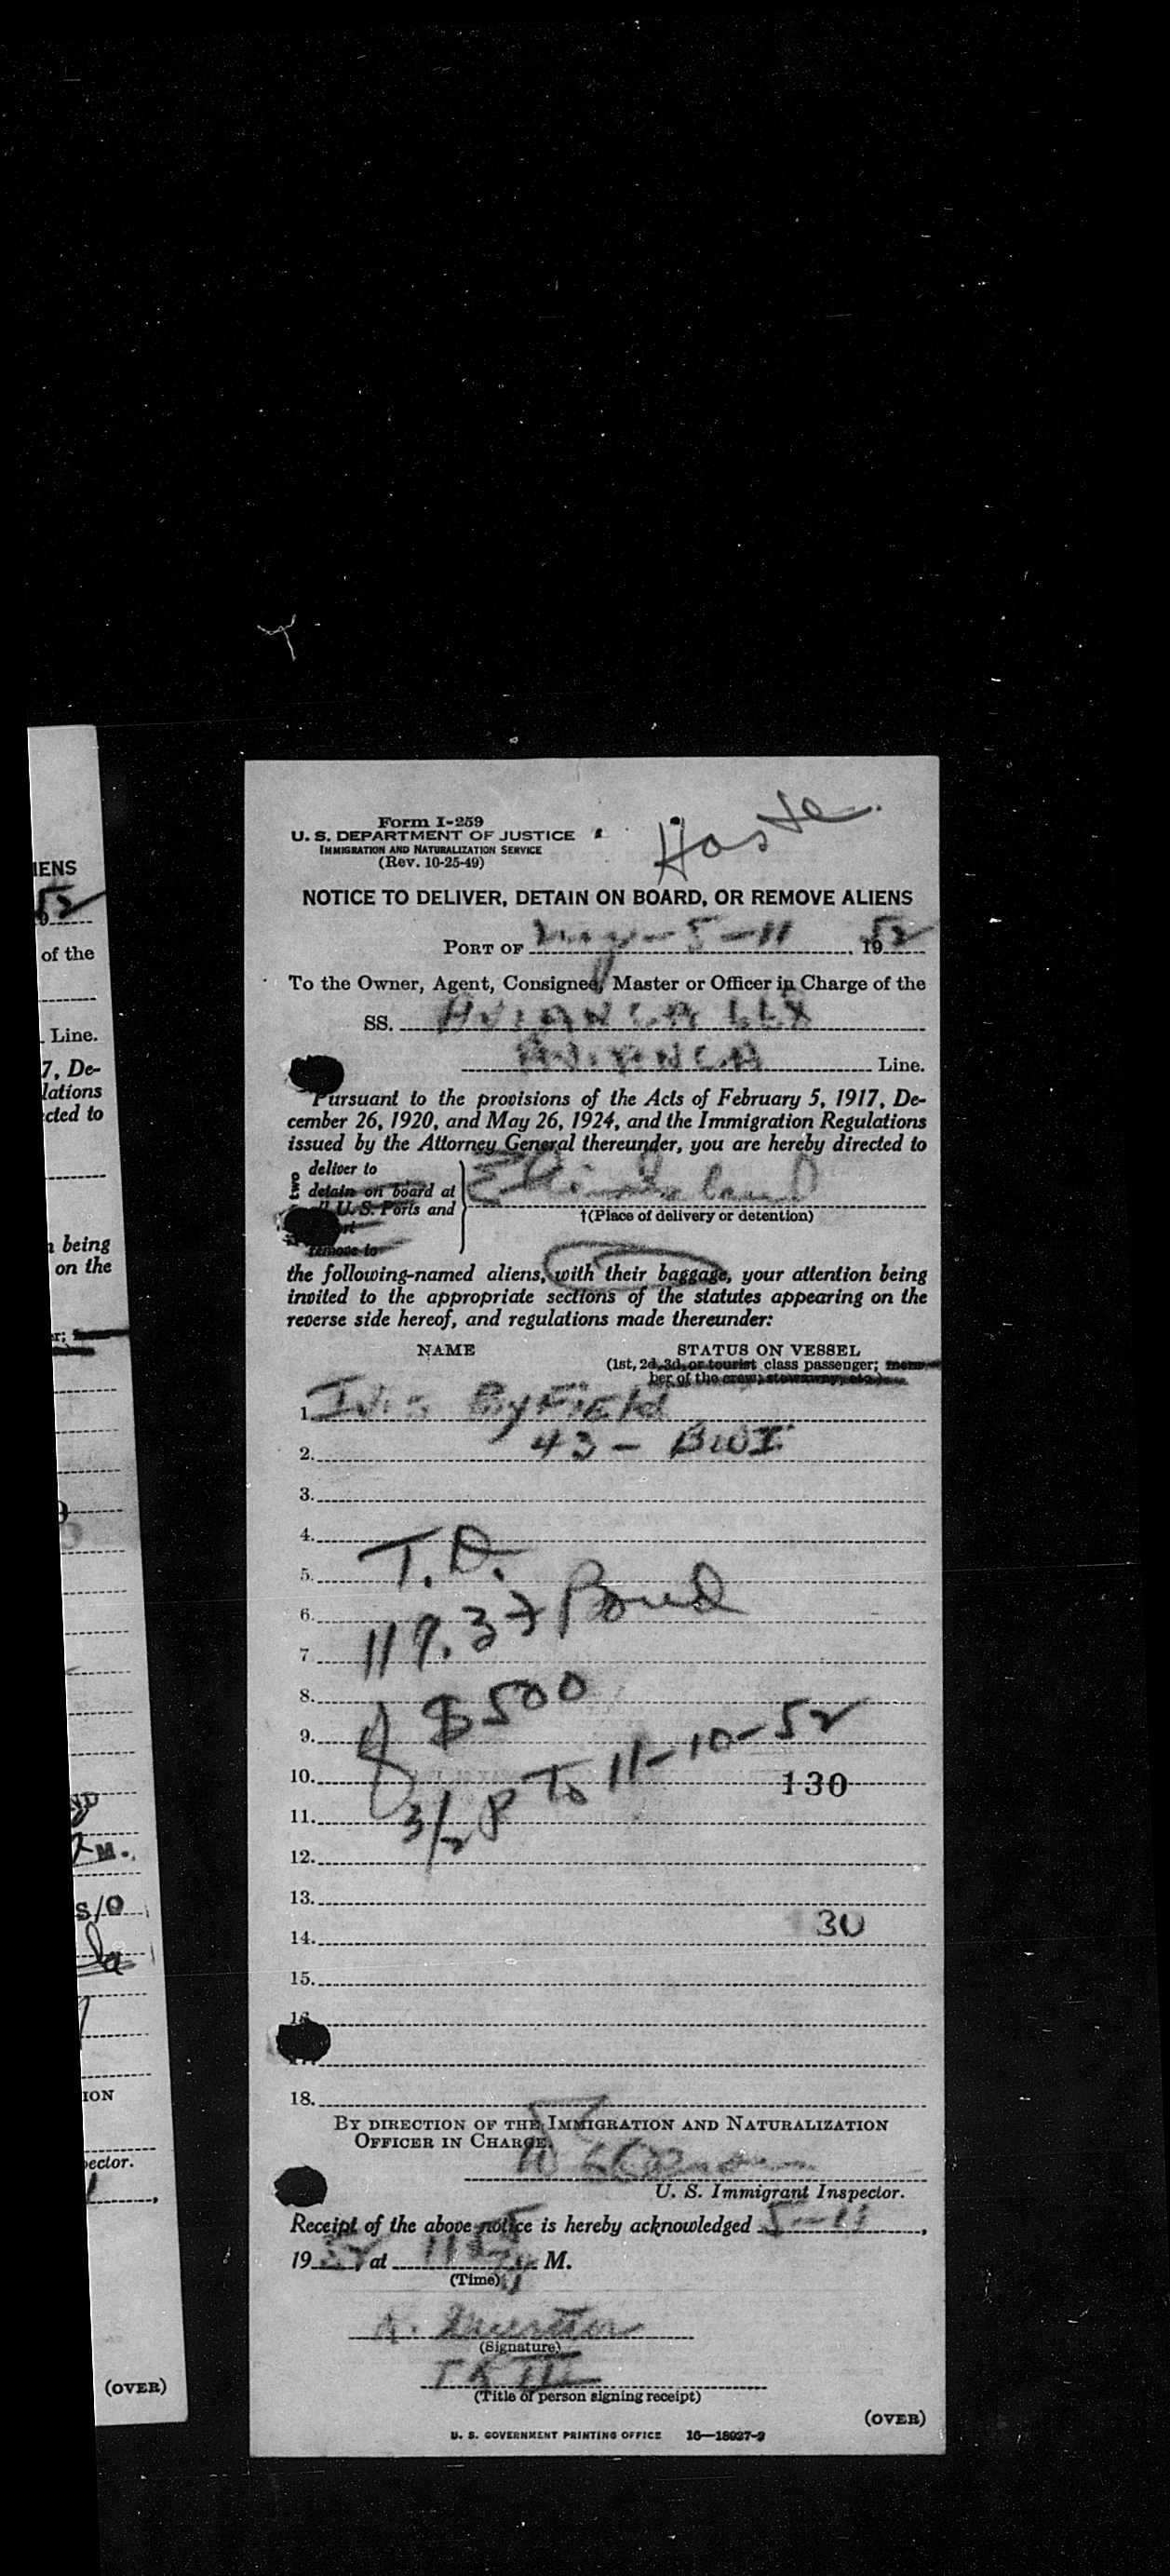 IENS
of the
Line.
7, De-
lations
cted to
n being
on the
ION
pector.
(OVER)
Haste.
Form I-259
U. S. DEPARTMENT OF JUSTICE
IMMIGRATION AND NATURALIZATION SERVICE
(Rev. 10-25-49)
NOTICE TO DELIVER, DETAIN ON BOARD, OR REMOVE ALIENS
PORT OF 5-11, 1952
To the Owner, Agent, Consignee, Master or Officer in Charge of the
SS. AVIANCA
AVIANCA Line.
Pursuant to the provisions of the Acts of February 5, 1917, De-
cember 26, 1920, and May 26, 1924, and the Immigration Regulations
issued by the Attorney General thereunder, you are hereby directed to
two
deliver to
detain on board at
U. S. Ports and
remove to
Ellis Island
†(Place of delivery or detention)
the following-named aliens, with their baggage, your attention being
invited to the appropriate sections of the statutes appearing on the
reverse side hereof, and regulations made thereunder:
NAME STATUS ON VESSEL
(1st, 2d, 3d, or tourist class passenger; mem-
ber of the crew; stowaway, etc.)
1. Byfield
2. 43 - BWI
3.
4.
T.D.
5.
6.
119.37 Bond
7.
8.
$500
9.
3/2 P To 11-10-52
10. 130
11.
12.
13.
30
14.
15.
16.
17.
18.
BY DIRECTION OF THE IMMIGRATION AND NATURALIZATION
OFFICER IN CHARGE.
U. S. Immigrant Inspector.
Receipt of the above notice is hereby acknowledged 5-11,
1952, at M.
(Time)
(Signature)
(Title of person signing receipt)
(OVER)
U. S. GOVERNMENT PRINTING OFFICE 16—18027-2